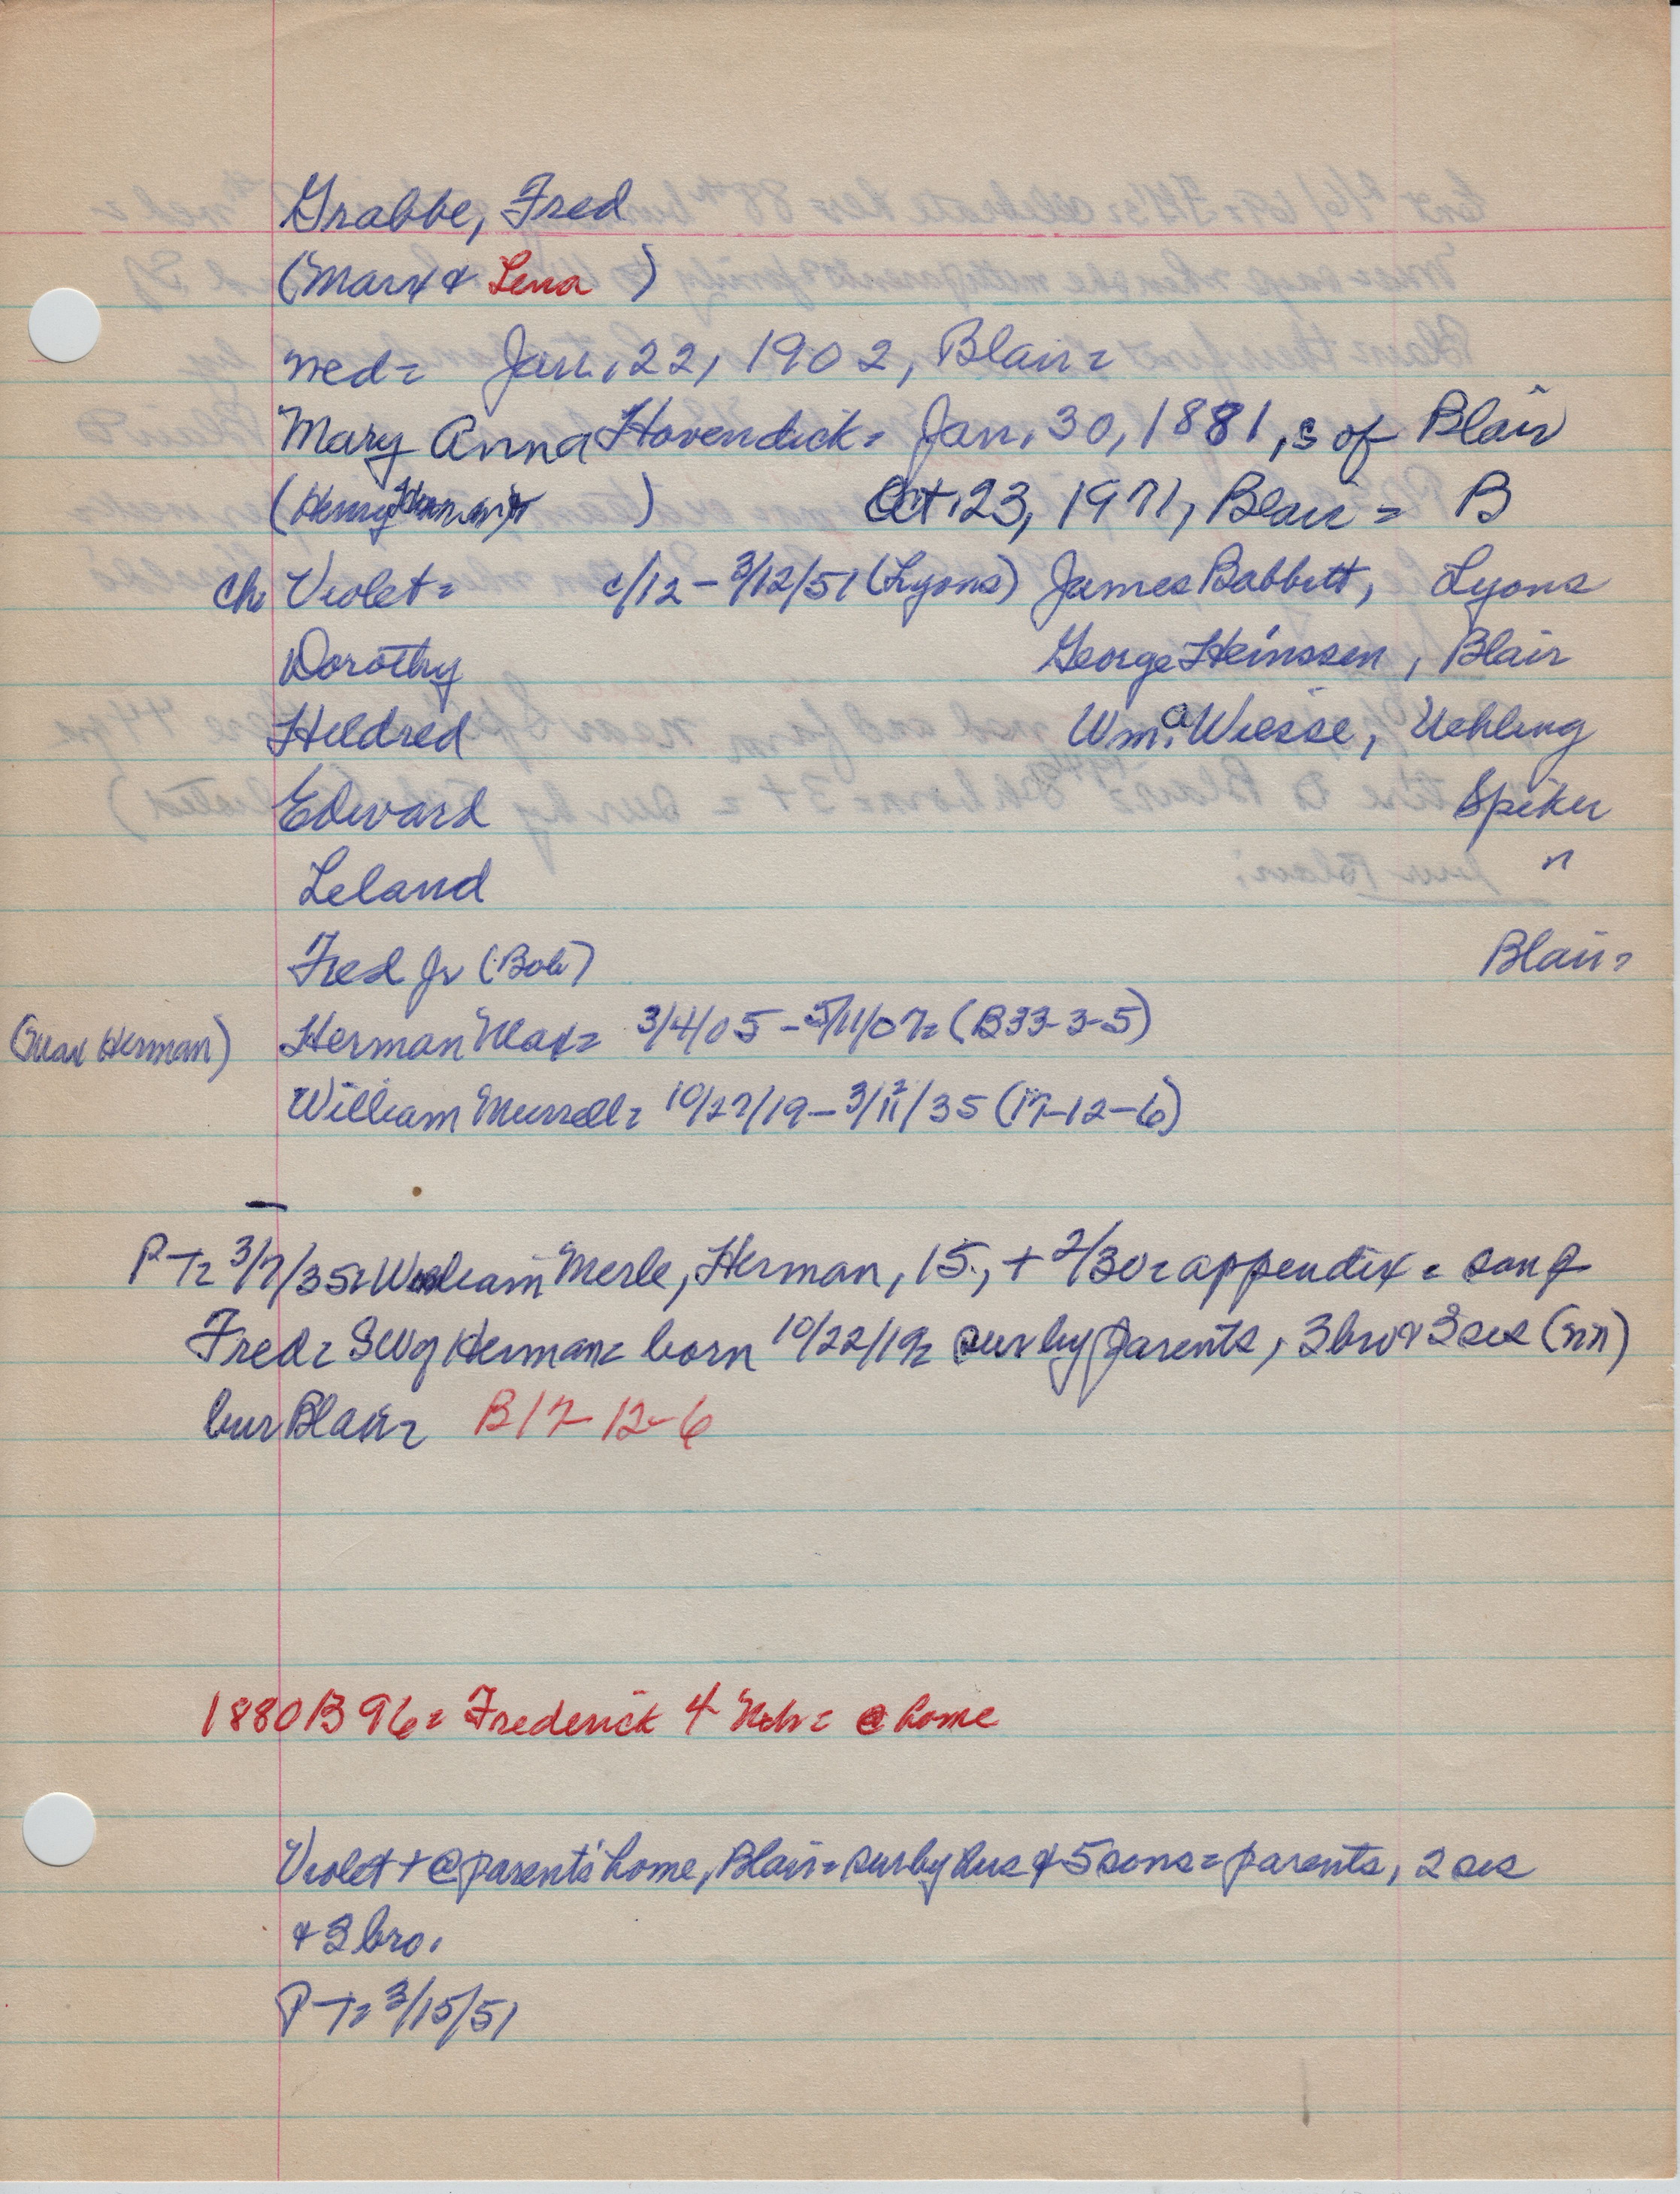 Grabbe, Fred
(Marx & Lena )
med= Jan. 22, 1902, Blair=
Mary Anna Hovendick= Jan. 30, 1881, s of Blair
(Henry ) Oct. 23, 1971, Blair = B
ch Violet= c/12 – 3/12/51 (Lyons) James Babbitt, Lyons
Dorothy George Heinssen, Blair
Hildred Wm. A Wiesse, Uehling
Edward Spiker
Leland "
Fred Jr (Bob) Blair=
(Max Herman) Herman Max= 3/4/05 – 5/11/07= (B33-3-5)
William Murrell= 10/27/19 – 3/2/35 (17-12-6)
P-T= 3/7/35= William Merle, Herman, 15, + 2/30= appendix = son of
Fred= SW of Herman= born 10/22/19= sur by parents, 3 bro & 3 sis (nn)
bur Blair= B17-12-6
1880 B 96= Frederick 4 Neb= @ home
Violet + @ parents' home, Blair= sur by hus & 5 sons= parents, 2 sis
& 3 bro.
P-T= 3/15/51